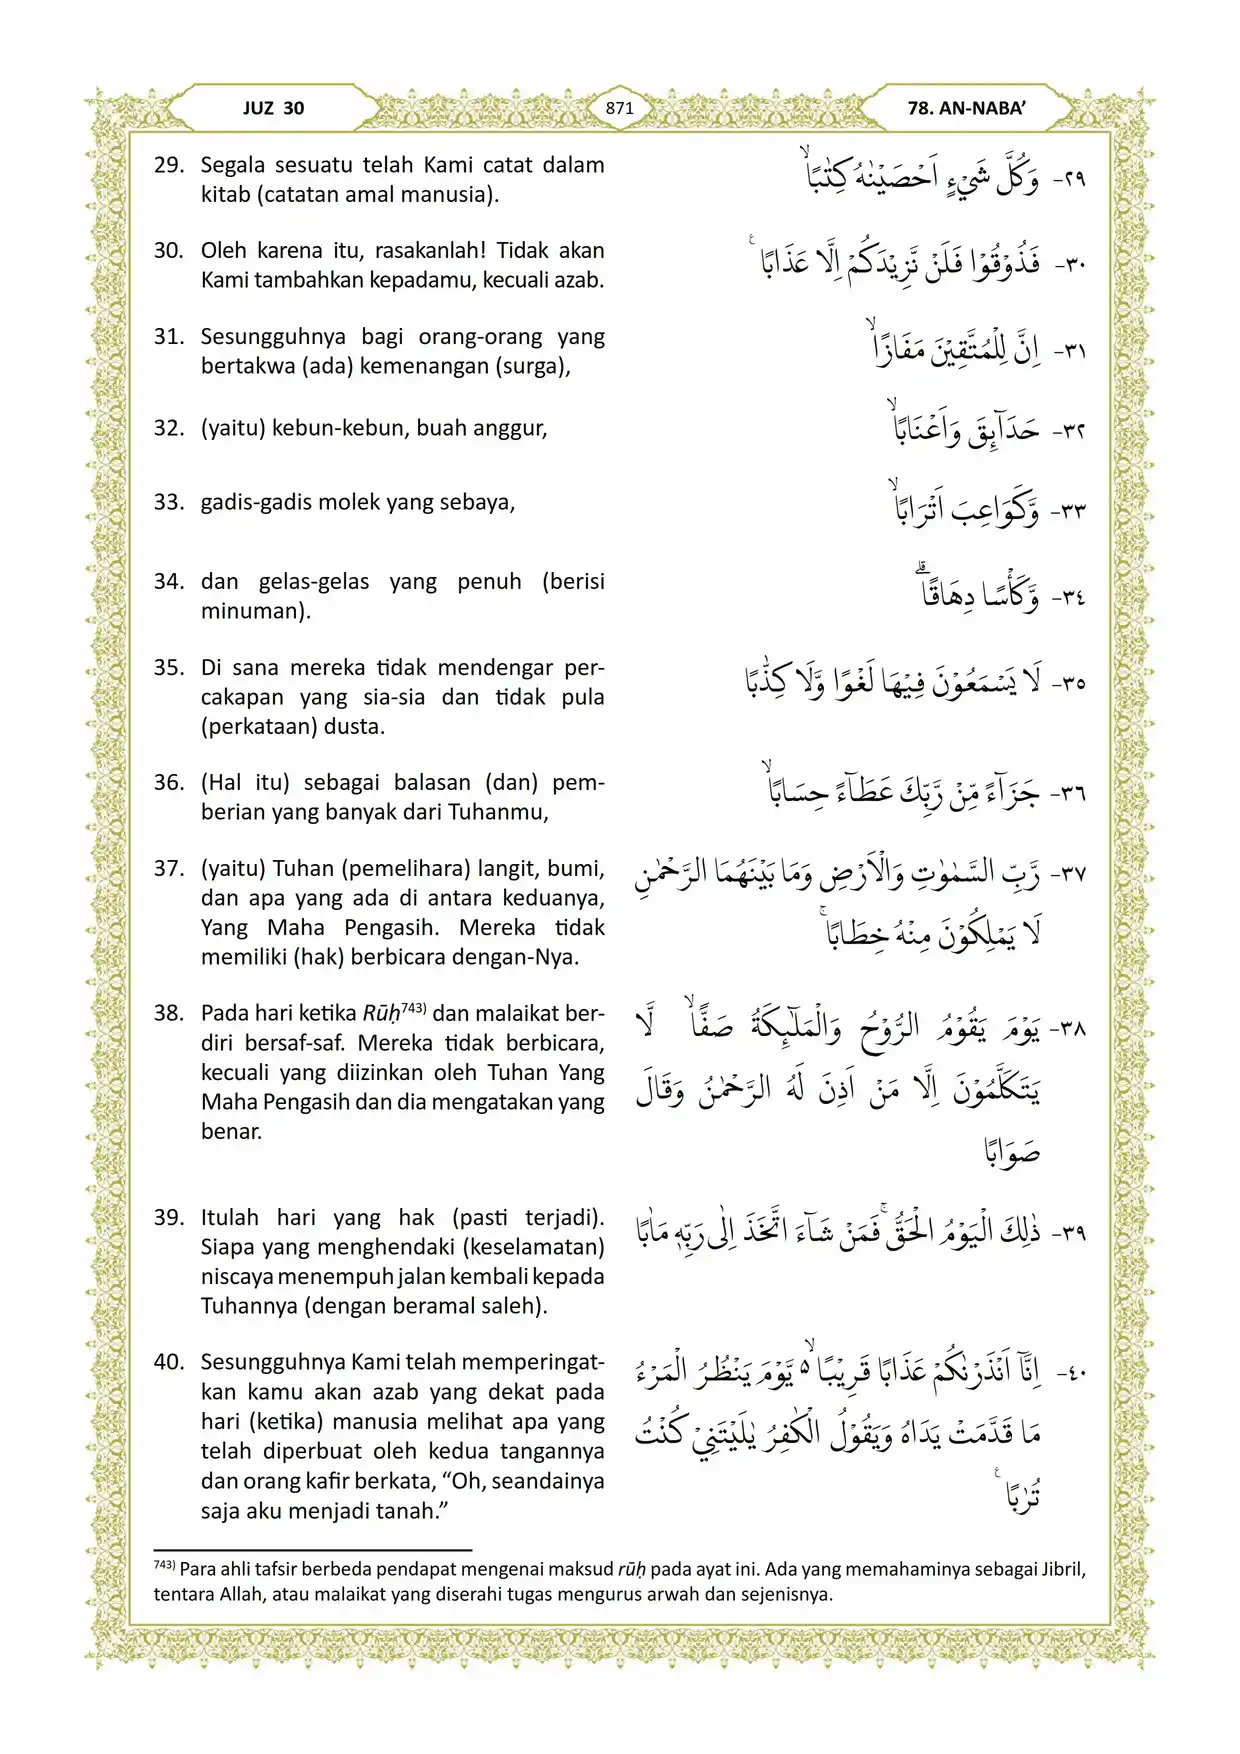 JUZ 30
871
78. AN-NABA’
29. Segala sesuatu telah Kami catat dalam
kitab (catatan amal manusia).
٢٩- وَكُلَّ شَيْءٍ اَحْصَيْنٰهُ كِتٰبًاۙ
30. Oleh karena itu, rasakanlah! Tidak akan
Kami tambahkan kepadamu, kecuali azab.
٣٠- فَذُوْقُوْا فَلَنْ نَّزِيْدَكُمْ اِلَّا عَذَابًا ࣖ
31. Sesungguhnya bagi orang-orang yang
bertakwa (ada) kemenangan (surga),
٣١- اِنَّ لِلْمُتَّقِيْنَ مَفَازًاۙ
32. (yaitu) kebun-kebun, buah anggur,
٣٢- حَدَاۤىِٕقَ وَاَعْنَابًاۙ
33. gadis-gadis molek yang sebaya,
٣٣- وَّكَوَاعِبَ اَتْرَابًاۙ
34. dan gelas-gelas yang penuh (berisi
minuman).
٣٤- وَّكَأْسًا دِهَاقًاۗ
35. Di sana mereka tidak mendengar per-
cakapan yang sia-sia dan tidak pula
(perkataan) dusta.
٣٥- لَا يَسْمَعُوْنَ فِيْهَا لَغْوًا وَّلَا كِذّٰبًا
36. (Hal itu) sebagai balasan (dan) pem-
berian yang banyak dari Tuhanmu,
٣٦- جَزَاۤءً مِّنْ رَّبِّكَ عَطَاۤءً حِسَابًاۙ
37. (yaitu) Tuhan (pemelihara) langit, bumi,
dan apa yang ada di antara keduanya,
Yang Maha Pengasih. Mereka tidak
memiliki (hak) berbicara dengan-Nya.
٣٧- رَّبِّ السَّمٰوٰتِ وَالْاَرْضِ وَمَا بَيْنَهُمَا الرَّحْمٰنِ
لَا يَمْلِكُوْنَ مِنْهُ خِطَابًاۚ
38. Pada hari ketika Rūḥ743) dan malaikat ber-
diri bersaf-saf. Mereka tidak berbicara,
kecuali yang diizinkan oleh Tuhan Yang
Maha Pengasih dan dia mengatakan yang
benar.
٣٨- يَوْمَ يَقُوْمُ الرُّوْحُ وَالْمَلٰۤىِٕكَةُ صَفًّاۙ لَّا
يَتَكَلَّمُوْنَ اِلَّا مَنْ اَذِنَ لَهُ الرَّحْمٰنُ وَقَالَ
صَوَابًا
39. Itulah hari yang hak (pasti terjadi).
Siapa yang menghendaki (keselamatan)
niscaya menempuh jalan kembali kepada
Tuhannya (dengan beramal saleh).
٣٩- ذٰلِكَ الْيَوْمُ الْحَقُّۚ فَمَنْ شَاۤءَ اتَّخَذَ اِلٰى رَبِّهٖ مَاٰبًا
40. Sesungguhnya Kami telah memperingat-
kan kamu akan azab yang dekat pada
hari (ketika) manusia melihat apa yang
telah diperbuat oleh kedua tangannya
dan orang kafir berkata, “Oh, seandainya
saja aku menjadi tanah.”
٤٠- اِنَّآ اَنْذَرْنٰكُمْ عَذَابًا قَرِيْبًا ەۙ يَّوْمَ يَنْظُرُ الْمَرْءُ
مَا قَدَّمَتْ يَدَاهُ وَيَقُوْلُ الْكٰفِرُ يٰلَيْتَنِيْ كُنْتُ
تُرٰبًا ࣖ
743) Para ahli tafsir berbeda pendapat mengenai maksud rūḥ pada ayat ini. Ada yang memahaminya sebagai Jibril,
tentara Allah, atau malaikat yang diserahi tugas mengurus arwah dan sejenisnya.